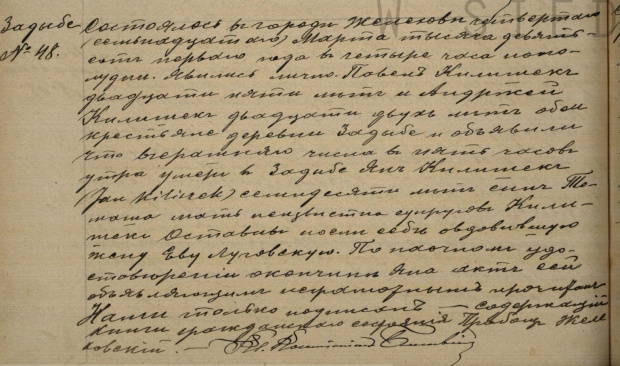 Задыбе Состоялось въ городѣ Желеховѣ четвертаго
№ 48. (семьнадцатаго) Марта тысяча девять
сотъ перваго года въ четыре часа пополу-
удни. Явились лично, Павелъ Килишекъ
двадцати пяти лѣтъ и Андржей
Килишекъ двадцати двухъ лѣтъ обои
крестьяне деревни Задыбе и объявили
что вчерашняго числа въ пять часовъ
утра умеръ въ Задыбе Янъ Килишекъ
(Jan Kiliszek) семидесяти лѣтъ сынъ То-
маша мать неизвѣстна супруговъ Кили-
шекъ Оставивъ послѣ себя овдовѣвшую
жену Еву Луговскую. По наочномъ удо-
стовѣреніи о кончинѣ Яна актъ сей
объявляющимъ неграмотнымъ прочитанъ
Нами только подписанъ — содержащій
книги гражданскаго состоянія Пробощь Желе
ховскій. —